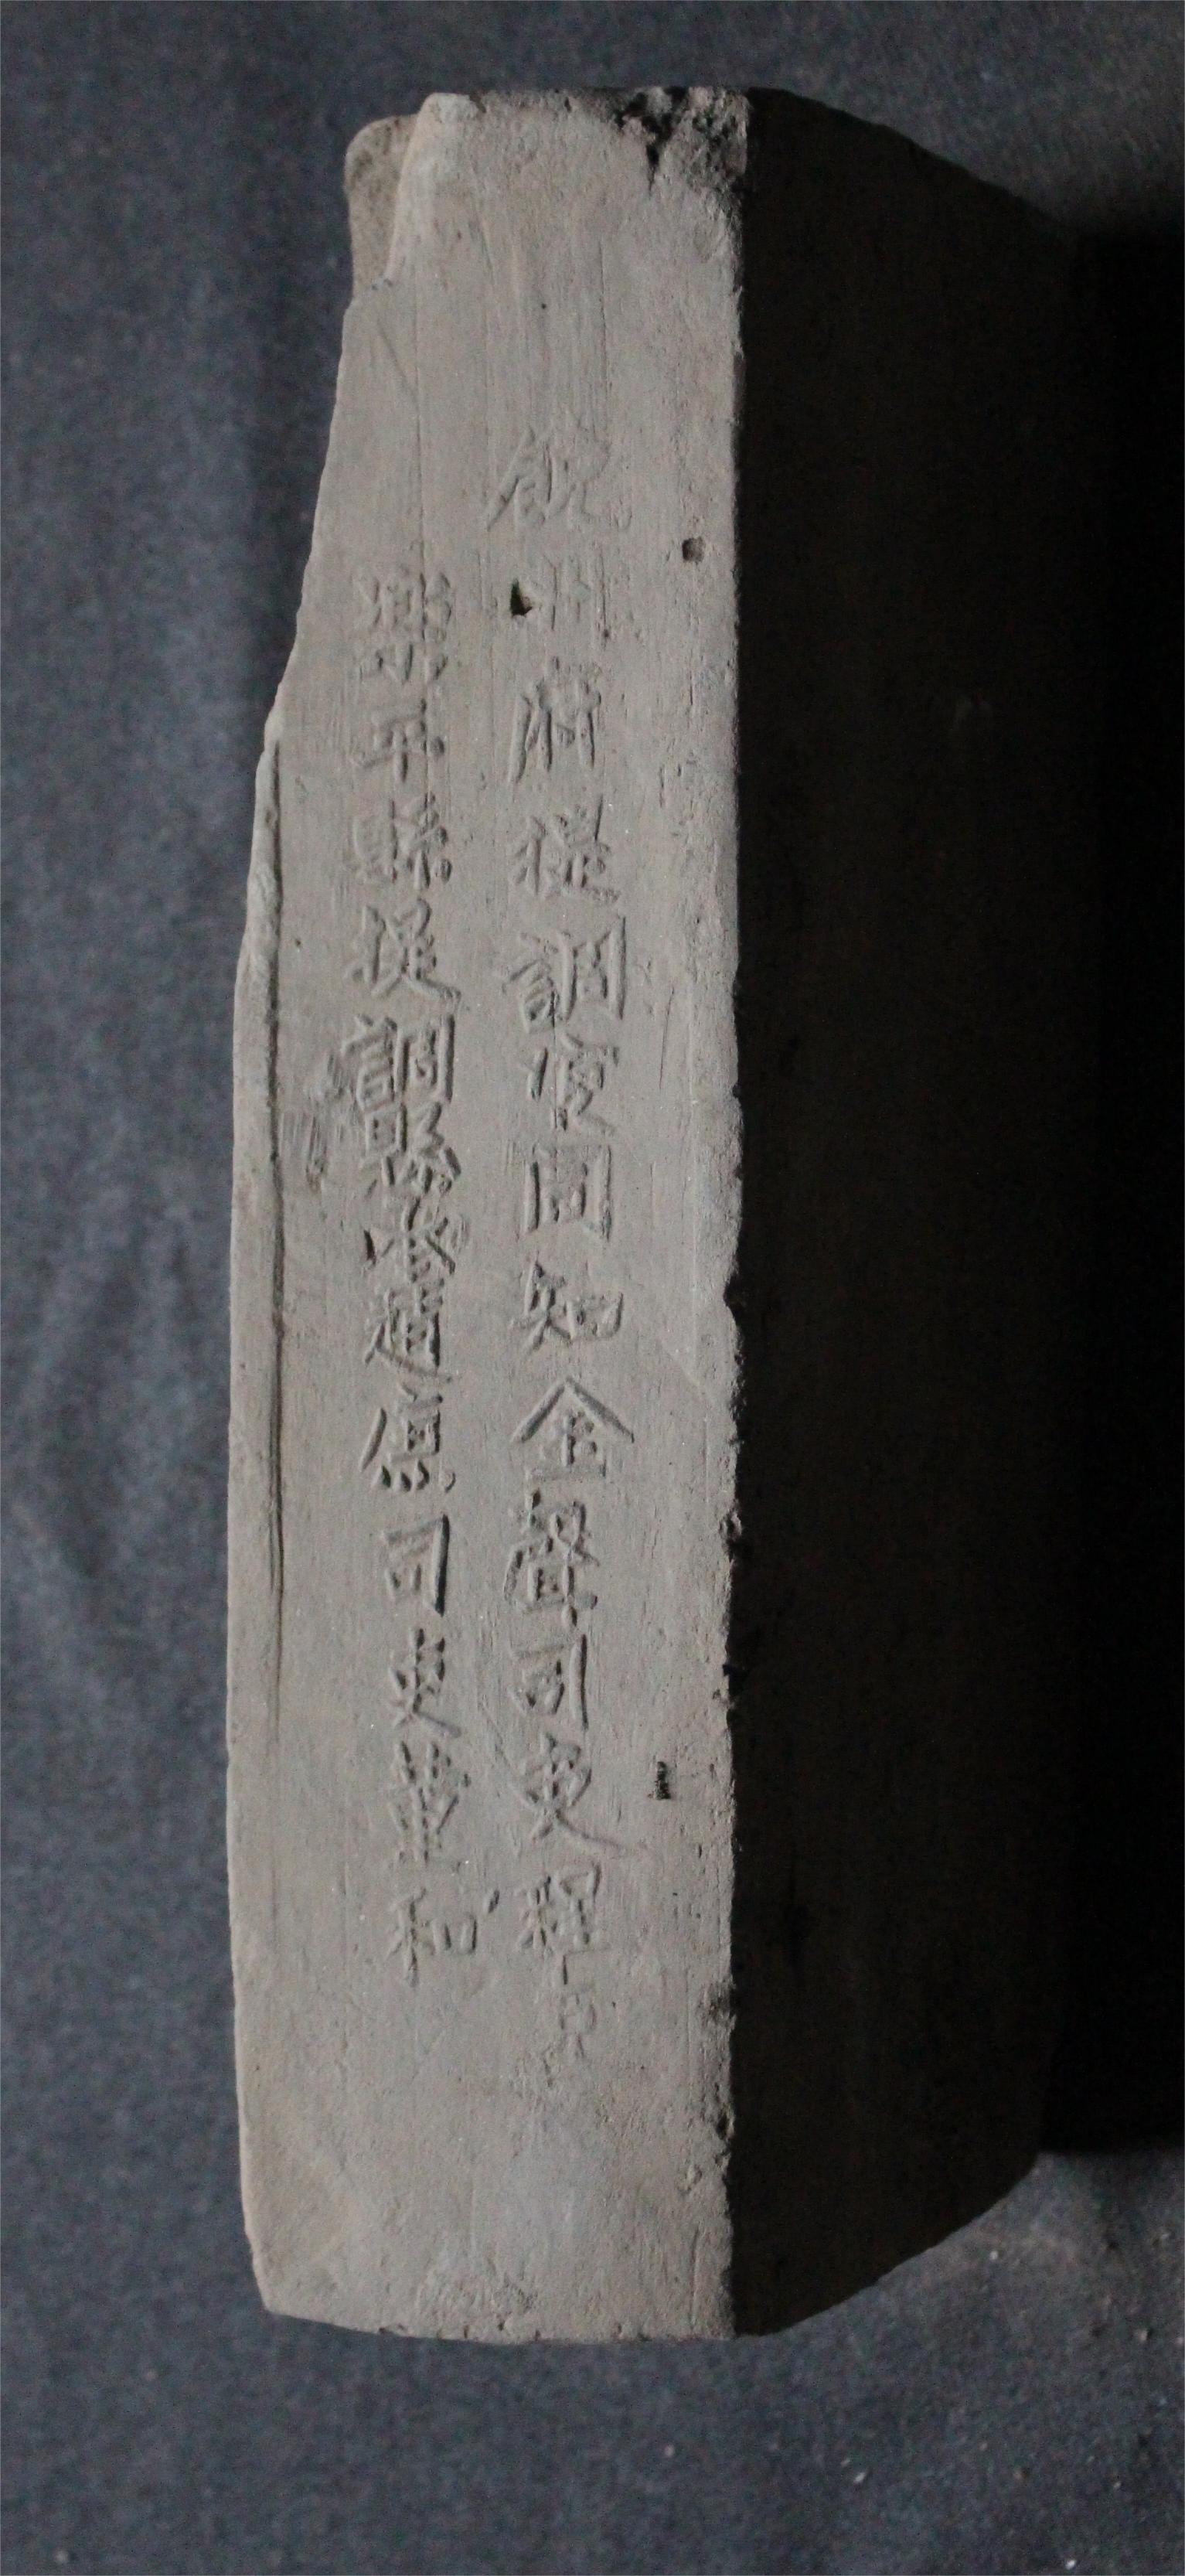 饒州府提調官同知金聲司吏程
樂平縣提調縣丞趙司吏董和